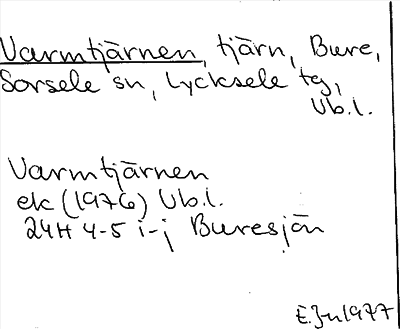 Varmtjärnen, tjärn, Bure,
Sorsele sn, Lycksele tg,
Vb.l.
Varmtjärnen
ek (1976) Vb.l.
24H 4-5 i-j Buresjön
E.Jn 1977